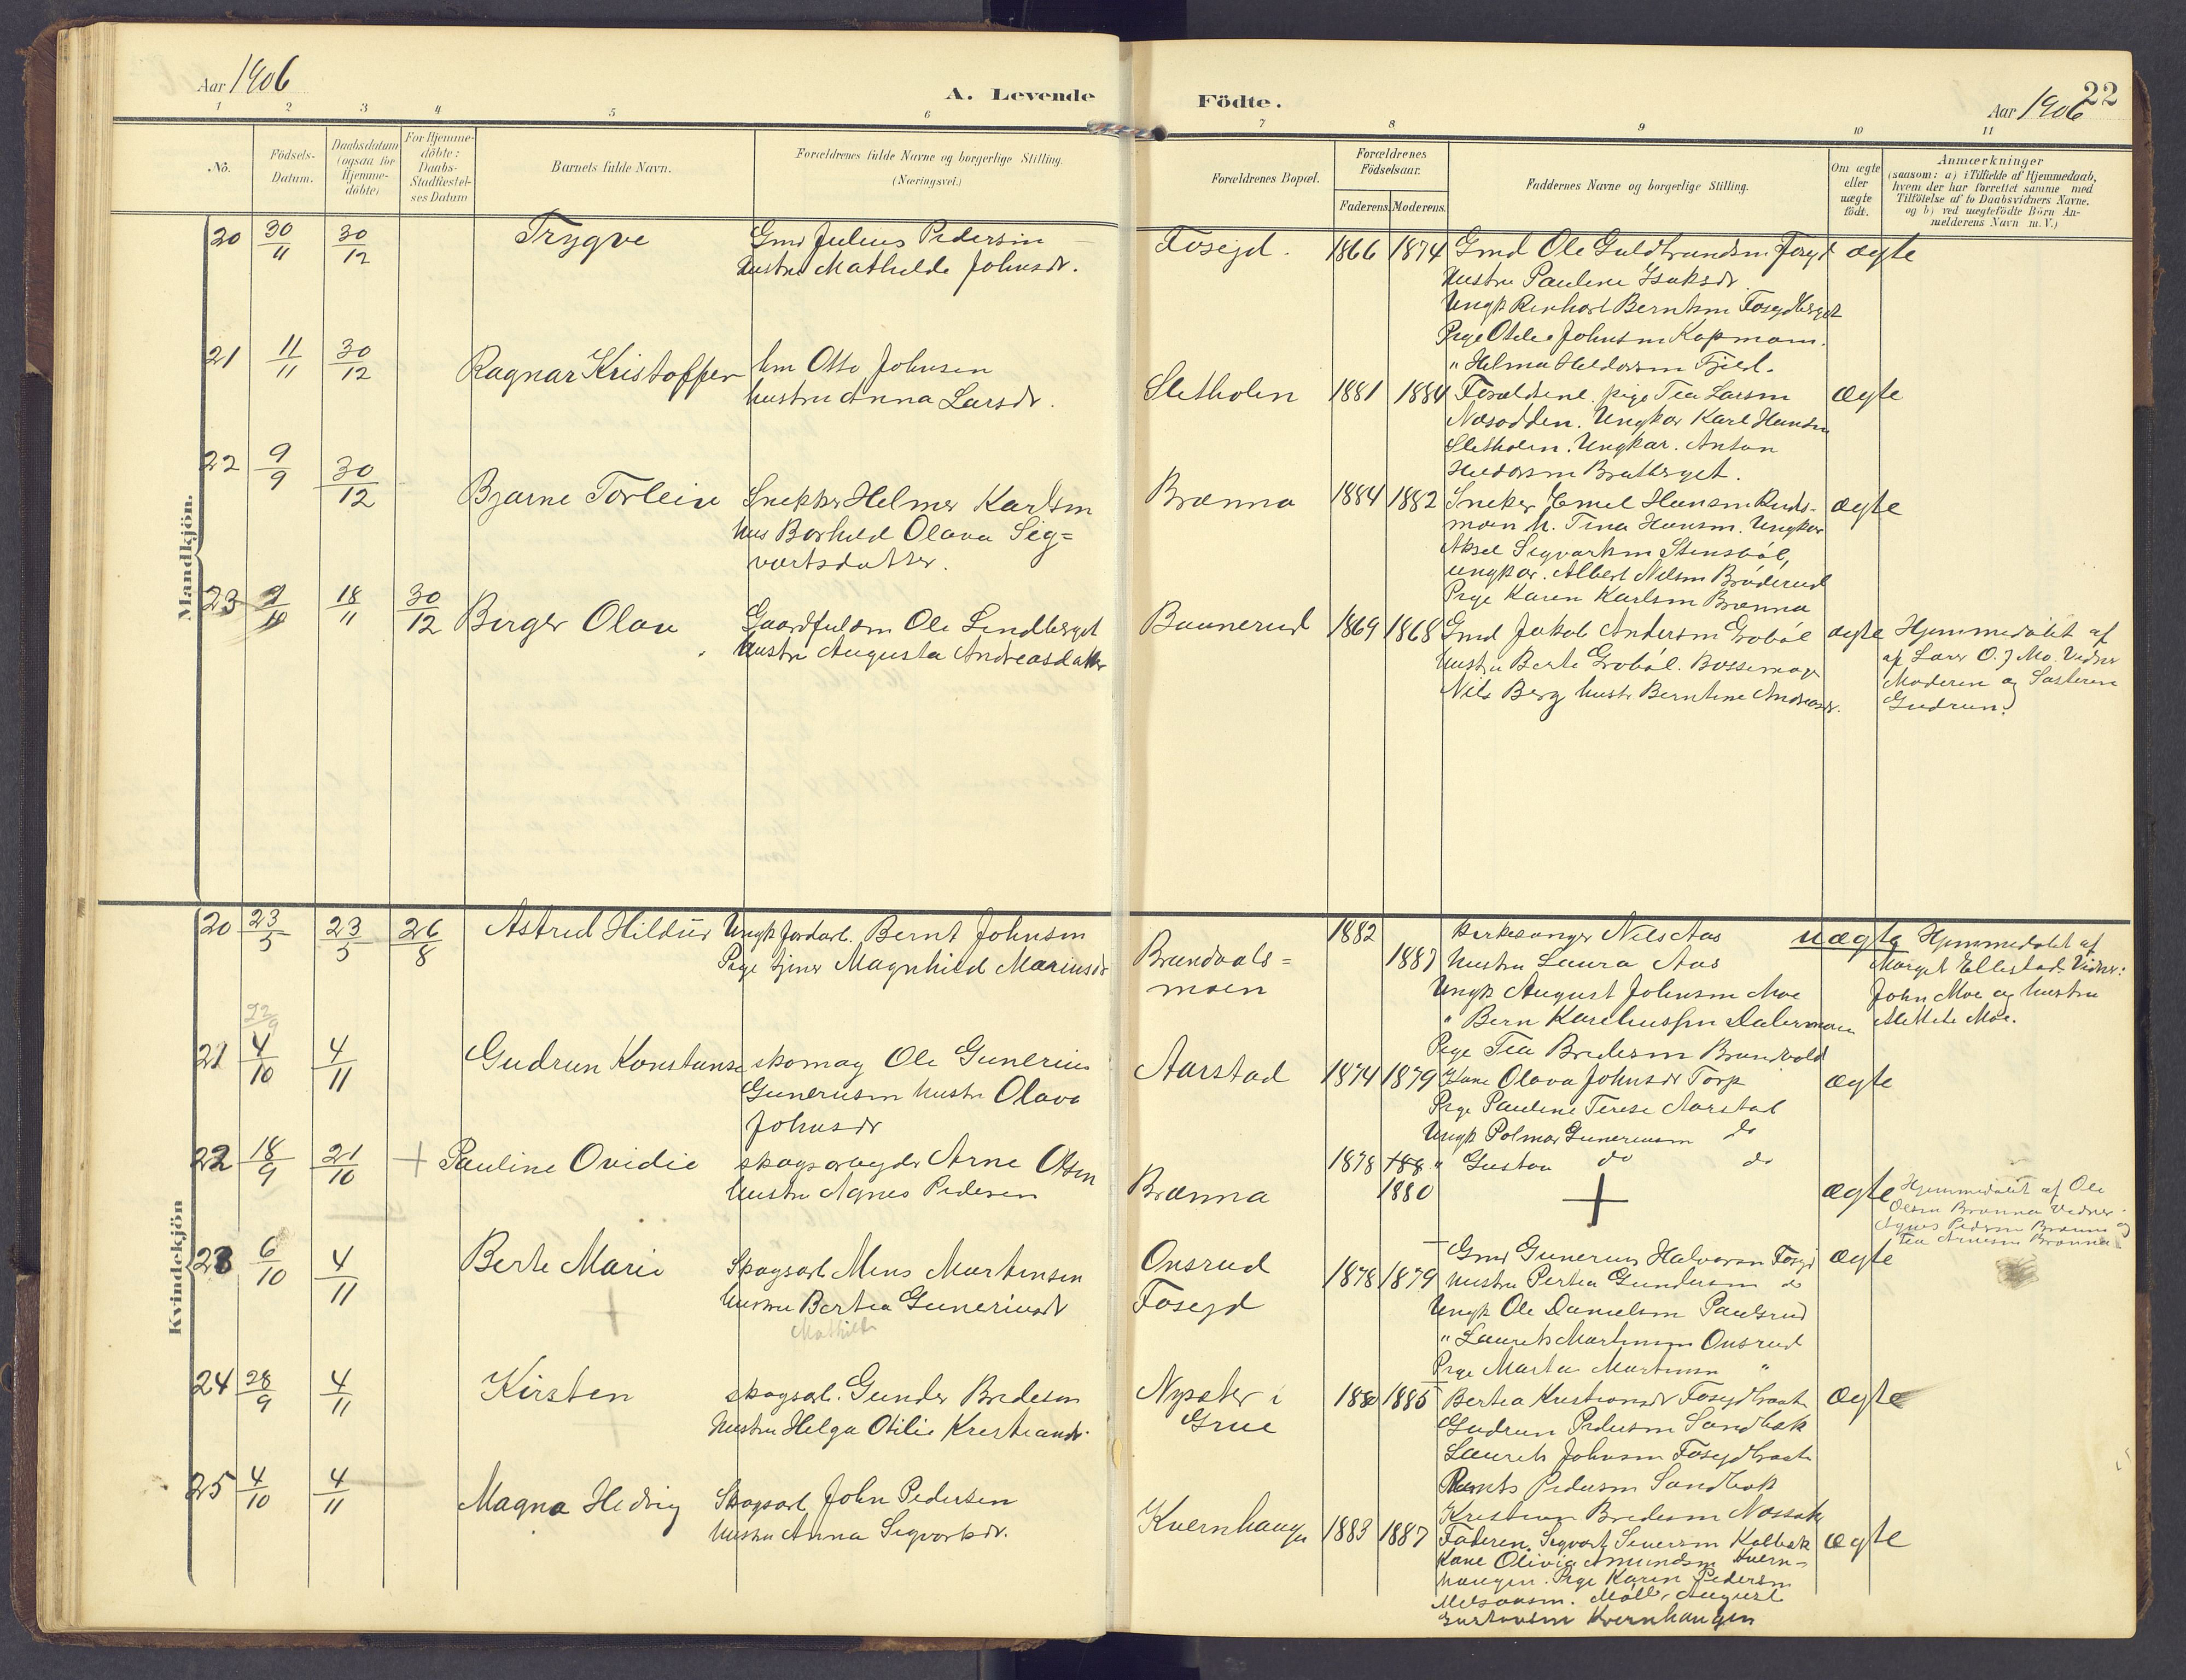 Aar 1906
A. Levende
Födte.
Aar 1906
22
1 2 3 4 5 6 7 8 9 10 11
No.
Födsels-
Datum.
Daabsdatum
(ogsaa for
Hjemme-
döbte)
For Hjemme-
döbte:
Daabs-
Stadfæstel-
ses Datum
Barnets fulde Navn.
Forældrenes fulde Navne og borgerlige Stilling.
(Næringsvei.)
Forældrenes Bopæl.
Forældrenes
Födselsaar.
Faderens. Moderens.
Faddernes Navne og borgerlige Stilling.
Om ægte
eller
uægte
födt.
Anmærkninger
(saasom: a) i Tilfælde af Hjemmedaab,
hvem der har forrettet samme med
Tilföielse af to Daabsvidners Navne.
og b) ved uægtefödte Börn An-
melderens Navn m. V.)
Mandkjön.
20 30/11 30/12 Trygve
Gmd Julius Pedersen
hustru Mathilde Johnsdr.
Foseyd. 1866 1874
Gmd Ole Guldbrandsen Foseyd
Hustru Pauline Isaksdr
Ungk Reinhart Berntsen Foseydberget
Pige Otilie Johnsen Kopmoen.
" Helma Heldorsen Fjeld.
ægte
21 11/11 30/12 Ragnar Kristoffer
hm Otto Johnsen
hustru Anna Larsdr.
Sletholen 1881 1884
Forældrene. pige Tea Larsen
Næsodden. Ungkar Karl Hansen
Sletholen. Ungkar. Anton
Heldorsen Bratberget.
ægte
22 9/9 30/12 Bjarne Torleiv
Snekker Helmer Karlsen
hus Borhild Olava Sig=
vartsdatter.
Brænna 1884 1882
Sneker Emil Hansen Runds-
moen h. Tina Hansen. Ungkar
Aksel Sigvartsen Stensböl,
ungkar. Albert Nilsen Bröderud
Pige Karen Karlsen Brænna
ægte
23 9/10 18/11 30/12 Birger Olav
Gaardfuldm Ole Lindberget
hustru Augusta Andreasdatter
Baunerud 1869 1868
Gmd Jakob Andersen Groböl
hustru Berte Groböl. Bössemager
Nils Berg hustr Berntine Andreasdr.
ægte
Hjemmedöbt af
af Lærer O. J Mo. Vidner
Moderen og Søsteren
Gudrun.
Kvindekjön
20 23/5 23/5 26/8 Astrid Hildur
Ungk jordarb. Bernt Johnsen
Pige tjener Magnhild Mariusdr
Brandvals=
moen
1882
1887
Kirkesanger Nils Aas
hustru Laura Aas
Ungk August Johnsen Moe
" Bern Kareliussen Dalermoen
Pige Tea Bredesen Brandvold
uægte
Hjemmedöbt af
Marget Ellestad. Vidner:
John Moe og hustru
Mettete Moe.
22/9
21 4/10 4/11 Gudrun Konstanse
skomag Ole Gunerius
Guneriusen hustru Olava
Johnsdr
Aarstad 1874 1879
Kone Olava Johnsdr Torp
Pige Pauline Terese Aarstad
Ungk Polmar Guneriusen do
" Gustav do do
ægte
22 18/9 21/10 + Pauline Ovidie
skogsarbeyder Arne Olsen
hustru Agnes Pedersen
Brænna
1878 188
1880
+
ægte
Hjemmedöbt af Ole
Olsen Brænna Vidner
Agnes Pedersen Brænna og
Tea Arnesen Brænna
23 6/10 4/11 Berte Marie
Skogsarb Mens Martinsen
hustru Bertea Guneriusdr
Mathilde
Onsrud
Foseyd
1878 1879
Gmd Gunerius Halvorsen Foseyd
hustru Pertea Gundersen do
Ungk Ole Danielsen Paulsrud
" Laurits Martinsen Onsrud
Pige Marta Martinsen "
ægte
24 28/9 4/11 Kirsten
skogsarb. Gunder Bredesen
hustru Helga Otilie Kristiansdr.
Nysæter i
Grue
1880 1885
Bertea Kristiansdr Foseydbraaten
Gudrun Pedersen Sandbak
Laurits Johnsen Foseydbraaten
Pedersen Sandbak
Kristian Bredesen
ægte
25 4/10 4/11 Magna Hedvig
Skogsarb John Pedersen
hustru Anna Sigvartsdr.
Kvernhaugen 1883 1887
Faderen. Sigvart Seversen Kalbak
Kone Olivia Amundsen Kvern-
haugen. Pige Karen Pedersen
August
Gustavsen Kvernhaugen
ægte